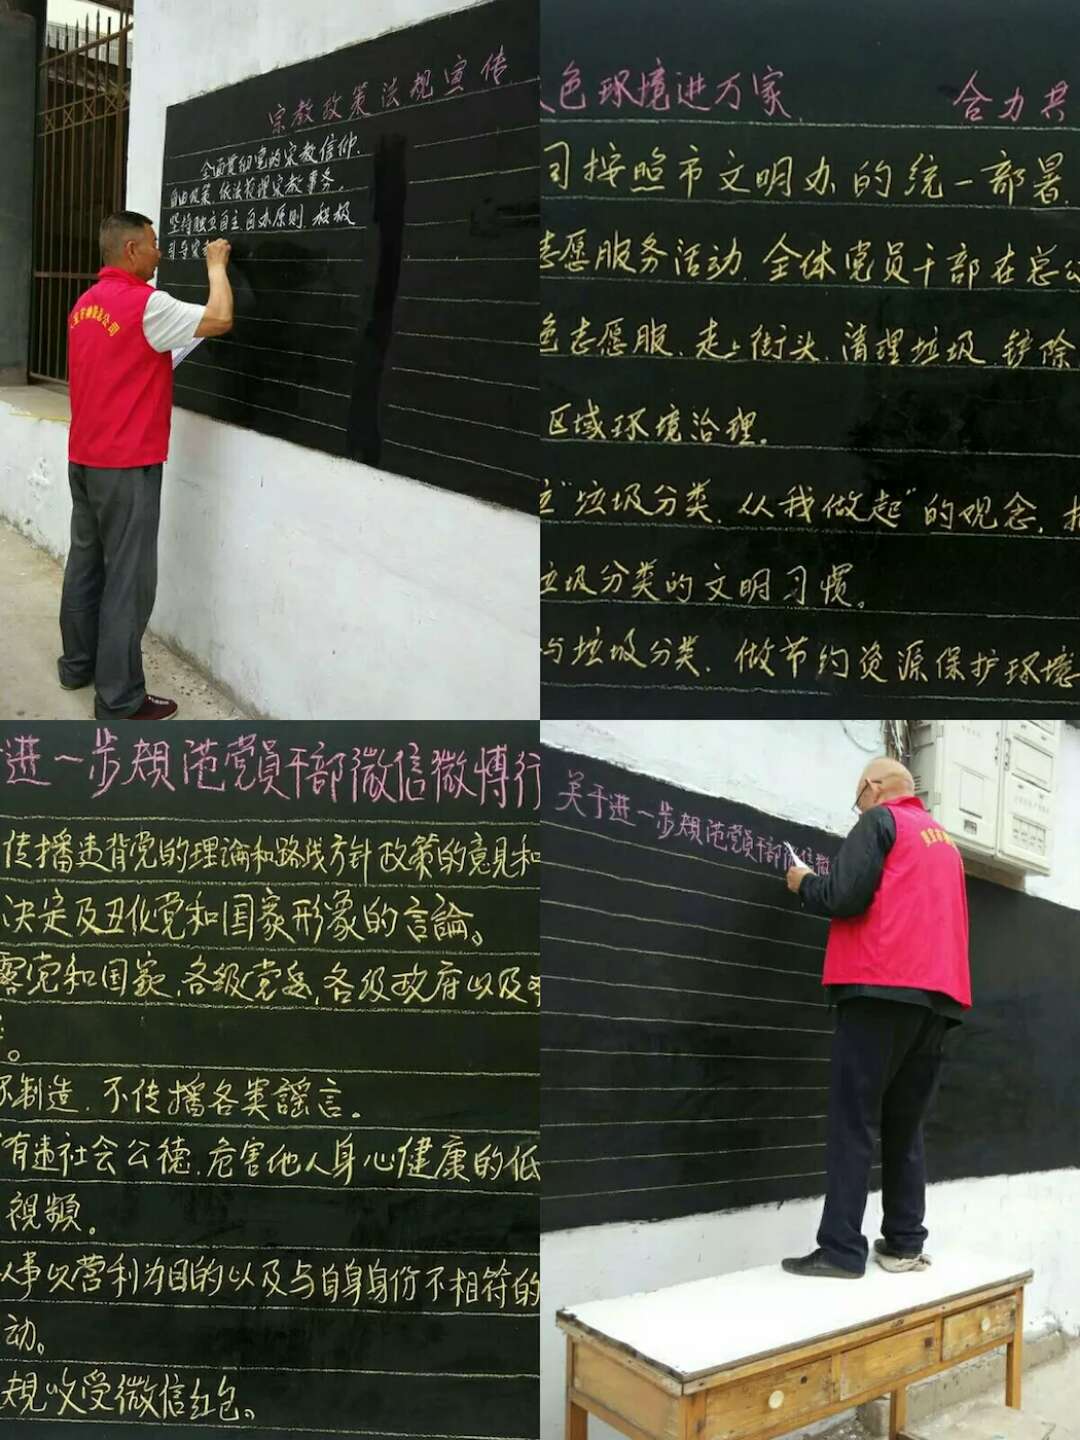 宗教政策法规宣传
全面贯彻党的宗教信仰
自由政策、依法管理宗教事务。
坚持独立自主自办原则、积极
引导宗教
色环境进万家 合力共
司按照市文明办的统一部署
志愿服务活动、全体党员干部在总公
色志愿服、走上街头、清理垃圾、铲除
区域环境治理。
"垃圾分类、从我做起"的观念、
垃圾分类的文明习惯。
与垃圾分类、做节约资源保护环境
进一步規范党員干部微信微博行
传播违背党的理論和路线方针政策的意見和
决定及丑化党和国家形象的言論。
露党和国家、各級党委、各级政府以及
。
不制造、不传播各类謡言。
有違社会公德、危害他人身心健康的低
視頻。
从事以营利为目的以及与自身身份不相符的
动。
規收受微信红包。
关于进一步規范党員干部微信微
公司